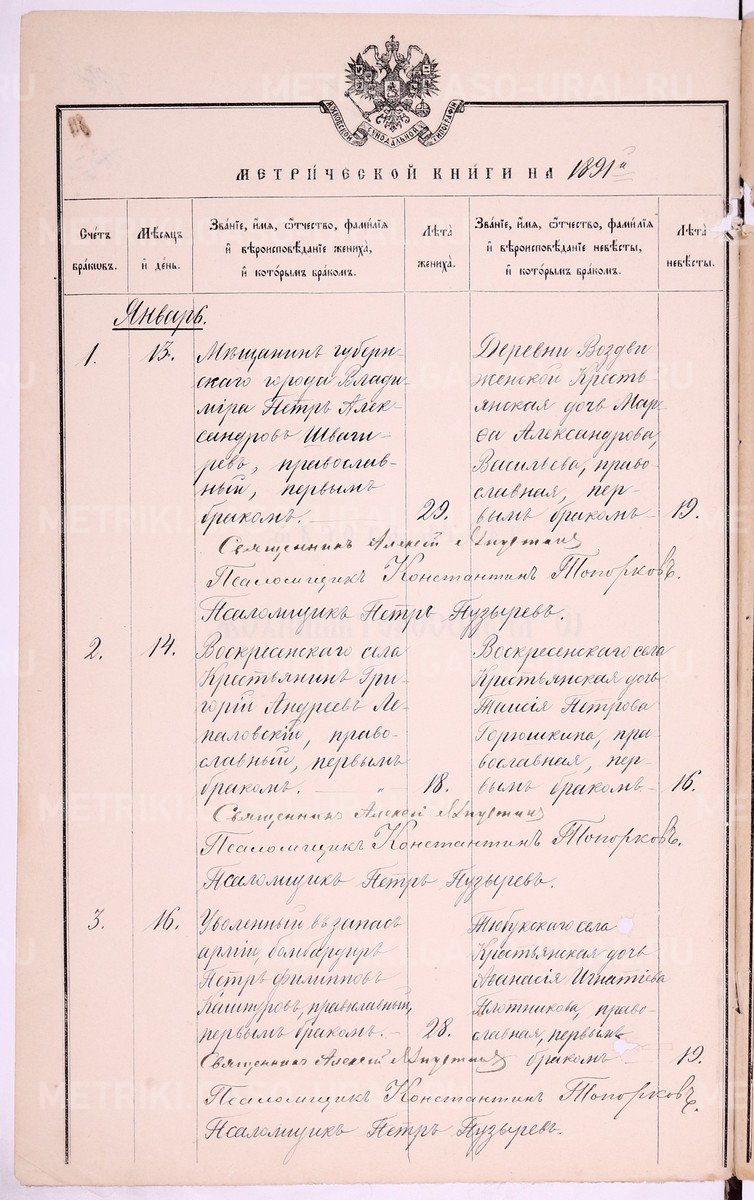 МЕТРИЧЕСКОЙ КНИГИ НА 1891й
Счетъ браковъ.
Мѣсяцъ и день.
Званіе, имя, отчество, фамилія и вѣроисповѣданіе жениха, и которымъ бракомъ.
Лѣта жениха.
Званіе, имя, отчество, фамилія и вѣроисповѣданіе невѣсты, и которымъ бракомъ.
Лѣта невѣсты.
Январь.
1.
13.
Мѣщанинъ губерн-
скаго города Влади-
міра Петръ Алек-
сандровъ Шваги-
ревъ, православ-
ный, первымъ
бракомъ.
29.
Деревни Воздви
женской Кресть
янская дочь Мар-
ѳа Александрова,
Васильева, право-
славная, пер-
вымъ бракомъ
19.
Священникъ Алексій
Псаломщикъ Константинъ Топорковъ.
Псаломщикъ Петръ Пузыревъ.
2.
14.
Воскресенскаго села
Крестьянинъ Гри-
горій Андреевъ Ле-
паловскій, право-
славный, первымъ
бракомъ.
18.
Воскресенскаго села
Крестьянская дочь
Таисія Петрова
Горюшкина, пра-
вославная, пер-
вымъ бракомъ
16.
Священникъ Алексій
Псаломщикъ Константинъ Топорковъ.
Псаломщикъ Петръ Пузыревъ.
3.
16.
Уволенный въ запасъ
арміи, бомбардиръ
Петръ Филипповъ
Каштуровъ, православный,
первымъ бракомъ.
28.
Тюбукскаго села
Крестьянская дочь
Аѳанасія Игнатіева
Плотникова, право-
славная, первымъ
бракомъ
19.
Священникъ Алексій
Псаломщикъ Константинъ Топорковъ.
Псаломщикъ Петръ Пузыревъ.